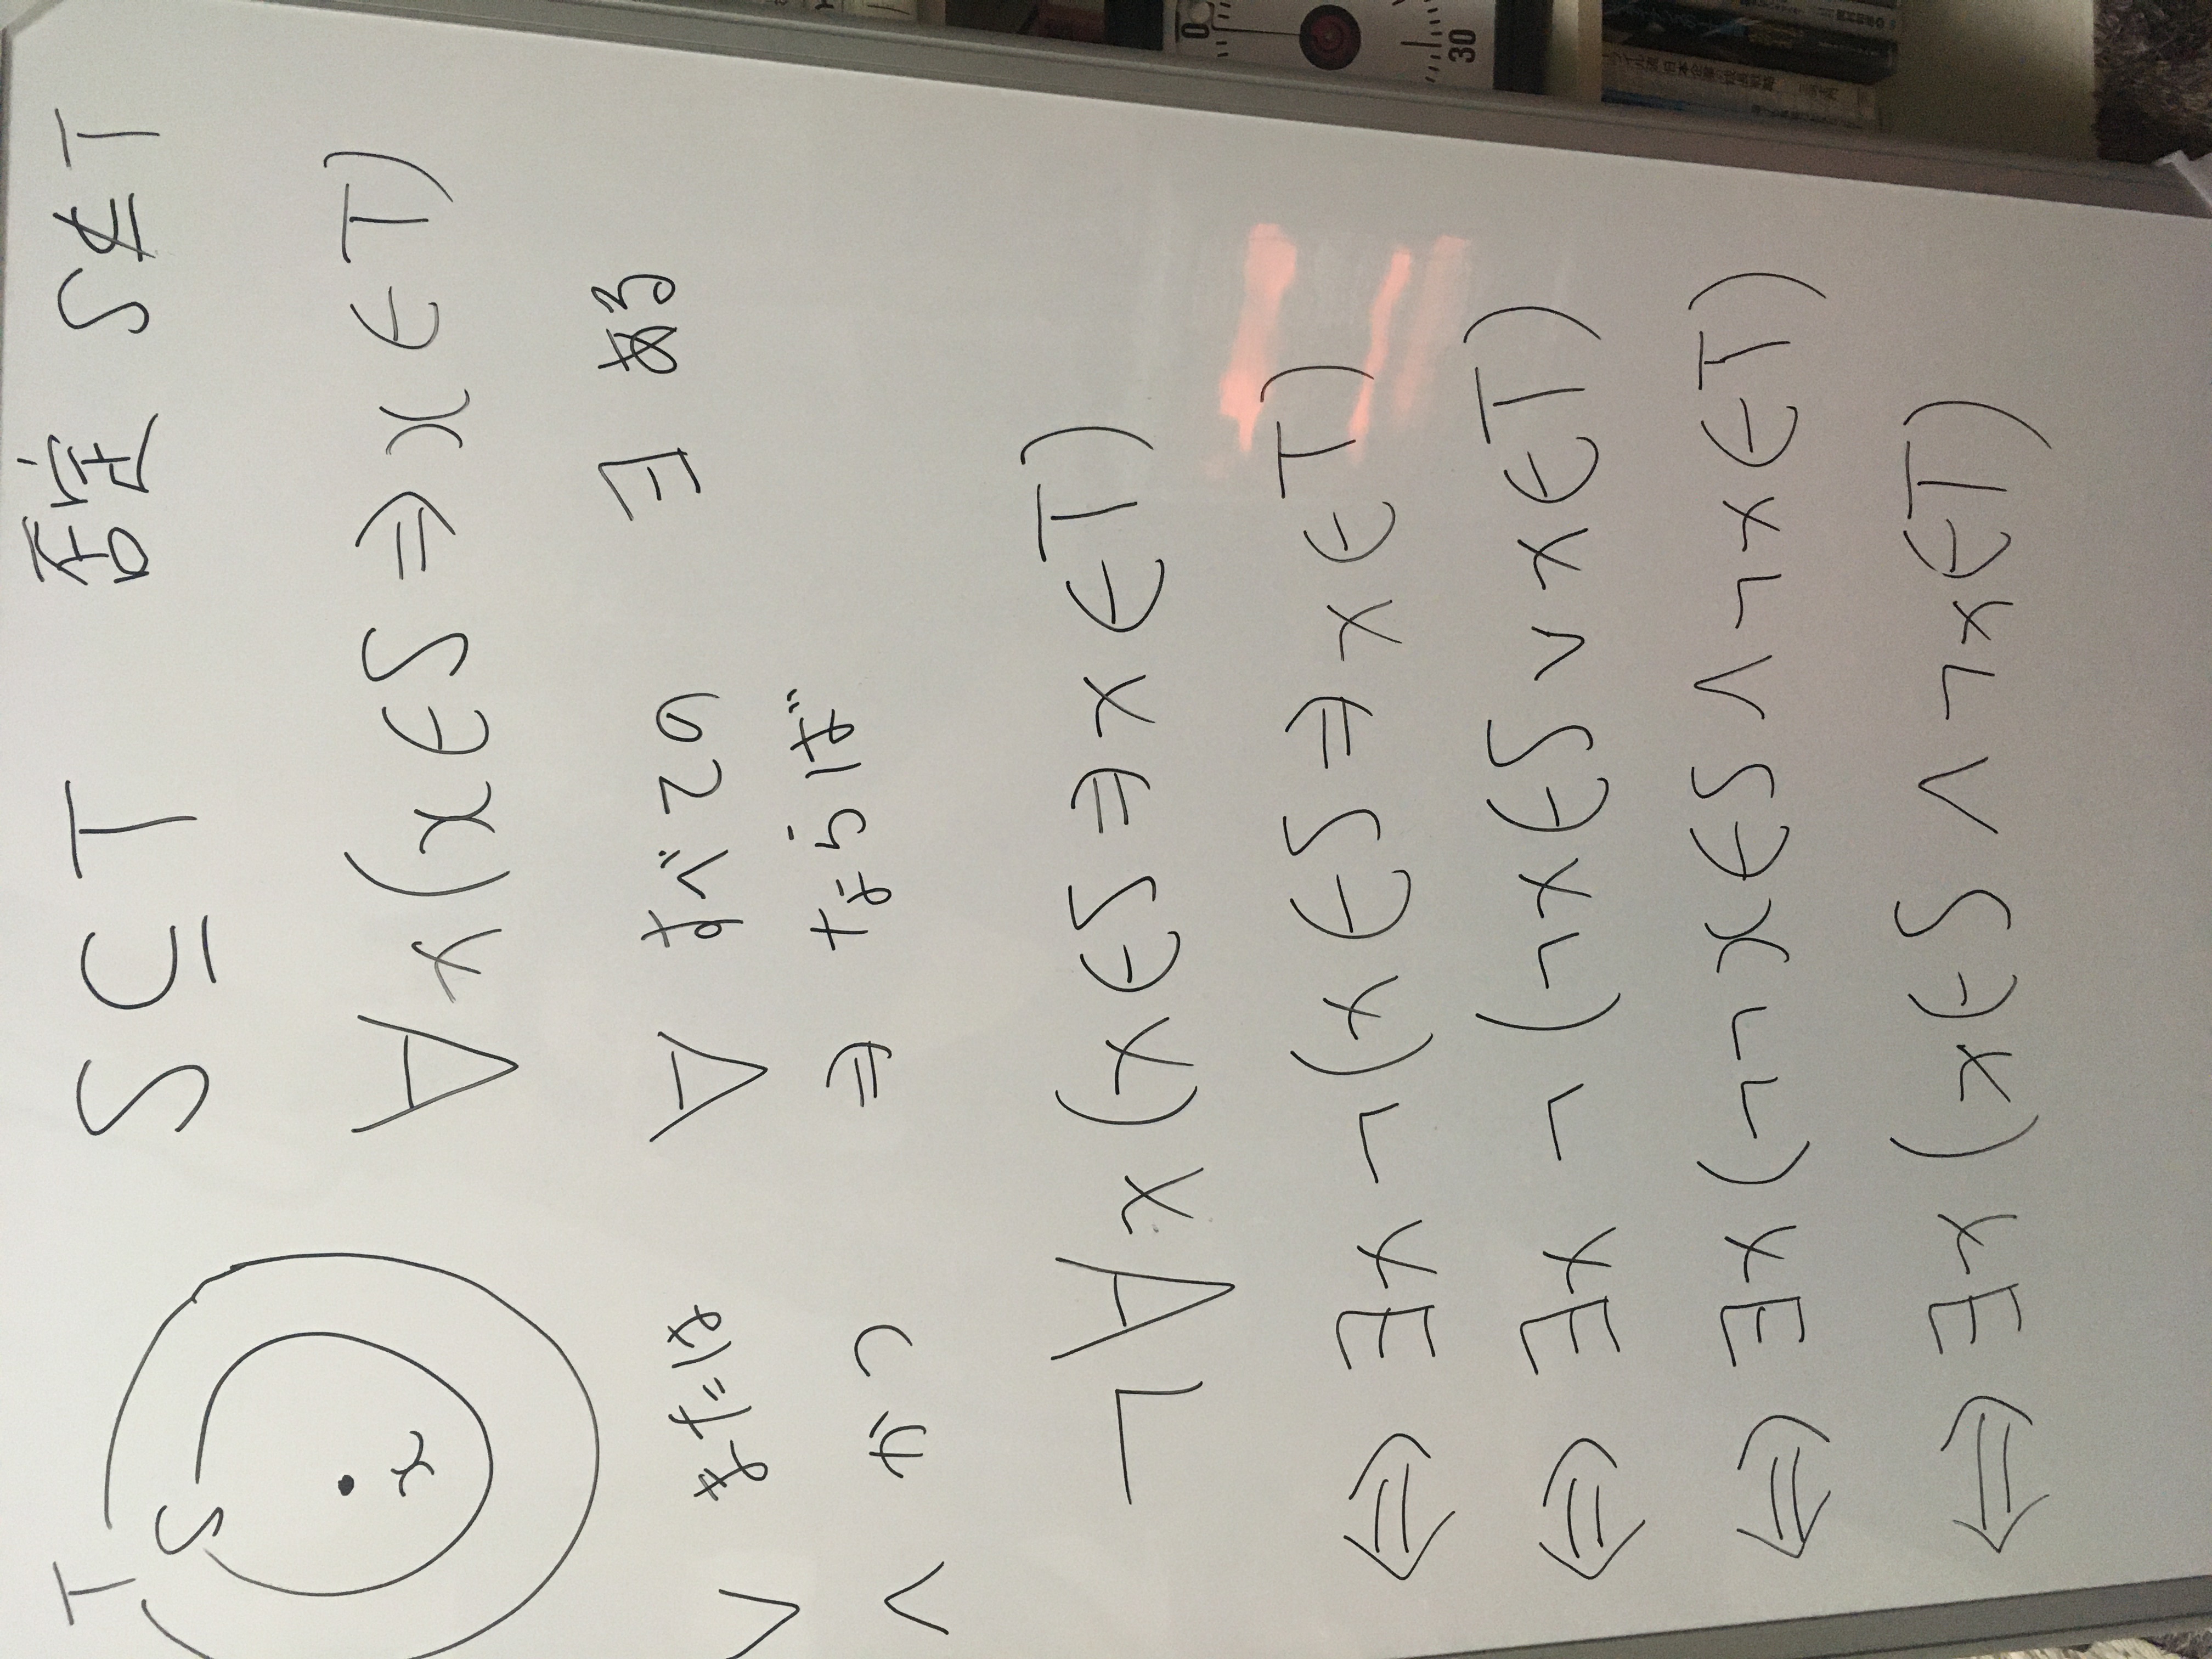 T
S
x
S ⊆ T 否定 S ⊈ T
∀x(x∈S ⇒ x∈T)
∨ または ∀ すべての ∃ ある
∧ かつ ⇒ ならば
¬∀x(x∈S ⇒ x∈T)
⇔ ∃x¬(x∈S ⇒ x∈T)
⇔ ∃x ¬(¬x∈S ∨ x∈T)
⇔ ∃x(¬¬x∈S ∧ ¬x∈T)
⇔ ∃x(x∈S ∧ ¬x∈T)
0
30